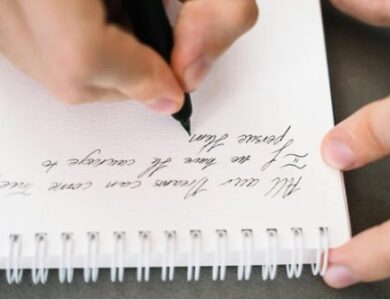 All our Dreams can come True,
If we have the courage to
persue them